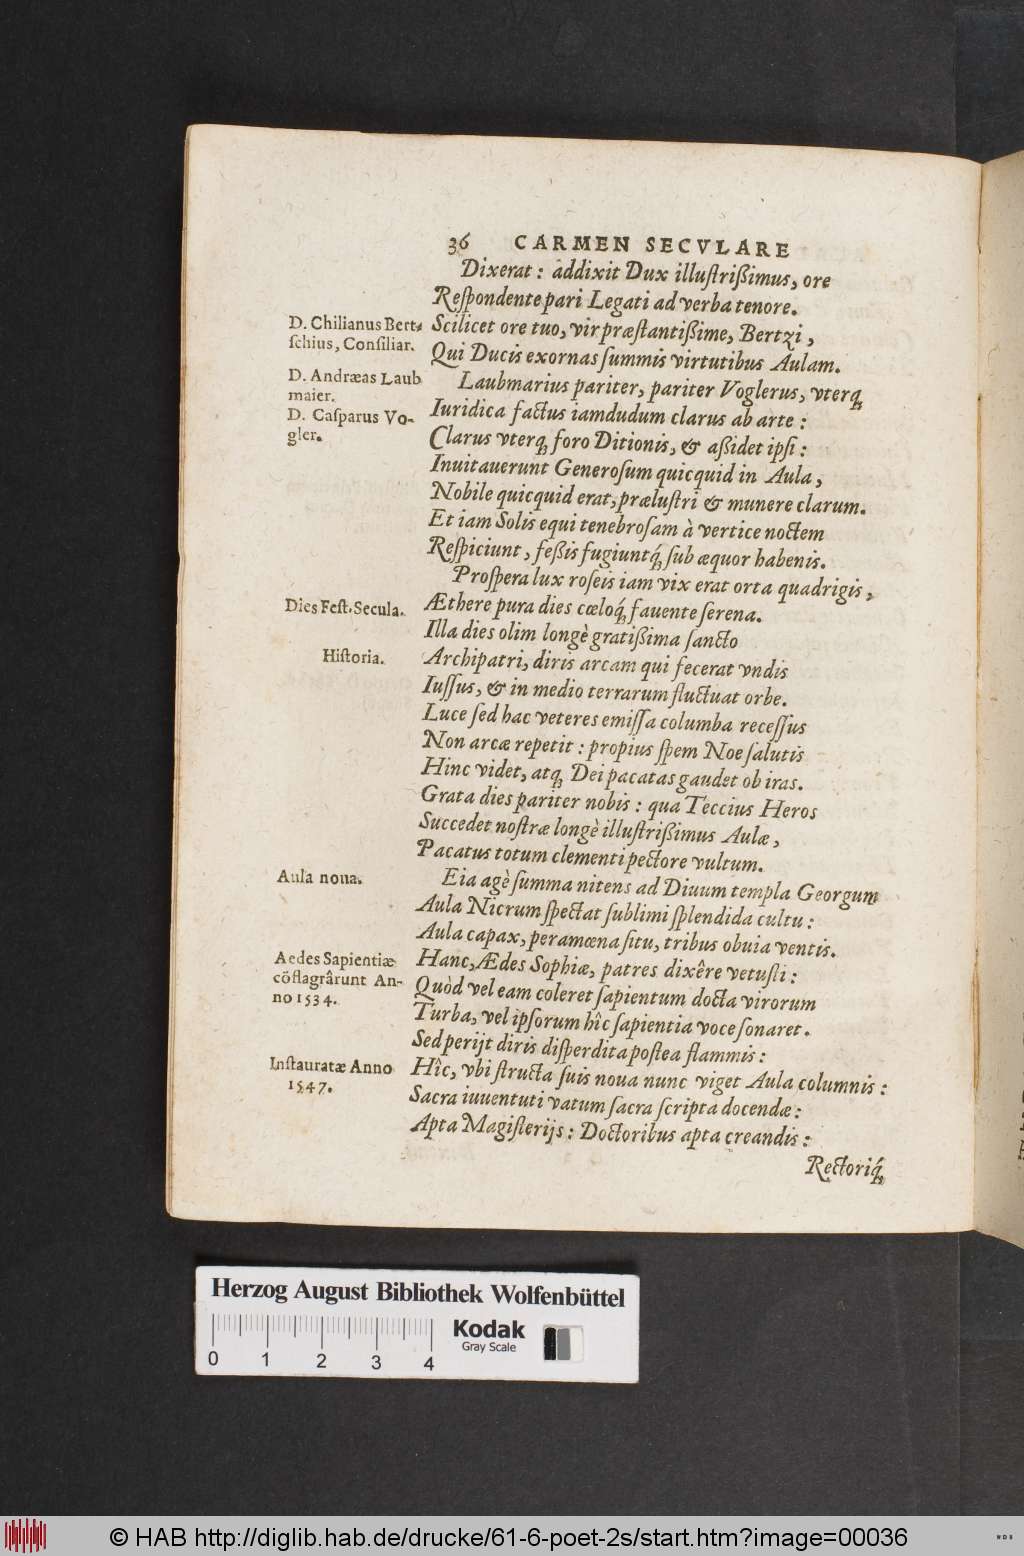 36 CARMEN SECVLARE
Dixerat: addixit Dux illustrißimus, ore
Respondente pari Legati ad verba tenore.
D. Chilianus Bert-
schius, Consiliar.
Scilicet ore tuo, vir præstantißime, Bertzi,
Qui Ducis exornas summis virtutibus Aulam.
D. Andræas Laub
maier.
D. Casparus Vo-
gler.
Laubmarius pariter, pariter Voglerus, vterq́
Iuridica factus iamdudum clarus ab arte:
Clarus vterq́ foro Ditionis, & aßidet ipsi:
Inuitauerunt Generosum quicquid in Aula,
Nobile quicquid erat, prælustri & munere clarum.
Et iam Solis equi tenebrosam à vertice noctem
Respiciunt, feßis fugiuntq́ sub æquor habenis.
Prospera lux roseis iam vix erat orta quadrigis,
Dies Fest. Secula.
Æthere pura dies cœloq́ fauente serena.
Illa dies olim longè gratißima sancto
Historia.
Archipatri, diris arcam qui fecerat vndis
Iussus, & in medio terrarum fluctuat orbe.
Luce sed hac veteres emissa columba recessus
Non arcæ repetit: propius spem Noe salutis
Hinc videt, atq́ Dei pacatas gaudet ob iras.
Grata dies pariter nobis: qua Teccius Heros
Succedet nostræ longè illustrißimus Aulæ,
Pacatus totum clementi pectore vultum.
Aula noua.
Eia agè summa nitens ad Diuum templa Georgum
Aula Nicrum spectat sublimi splendida cultu:
Aula capax, peramœna situ, tribus obuia ventis.
Aedes Sapientiæ
cōflagrârunt An-
no 1534.
Hanc, Ædes Sophiæ, patres dixêre vetusti:
Quòd vel eam coleret sapientum docta virorum
Turba, vel ipsorum hîc sapientia voce sonaret.
Sed perijt diris disperdita postea flammis:
Instauratæ Anno
1547.
Hîc, vbi structa suis noua nunc viget Aula columnis:
Sacra iuuentuti vatum sacra scripta docendæ:
Apta Magisterijs: Doctoribus apta creandis:
Rectoriq́
Herzog August Bibliothek Wolfenbüttel
Kodak
Gray Scale
0 1 2 3 4
© HAB http://diglib.hab.de/drucke/61-6-poet-2s/start.htm?image=00036